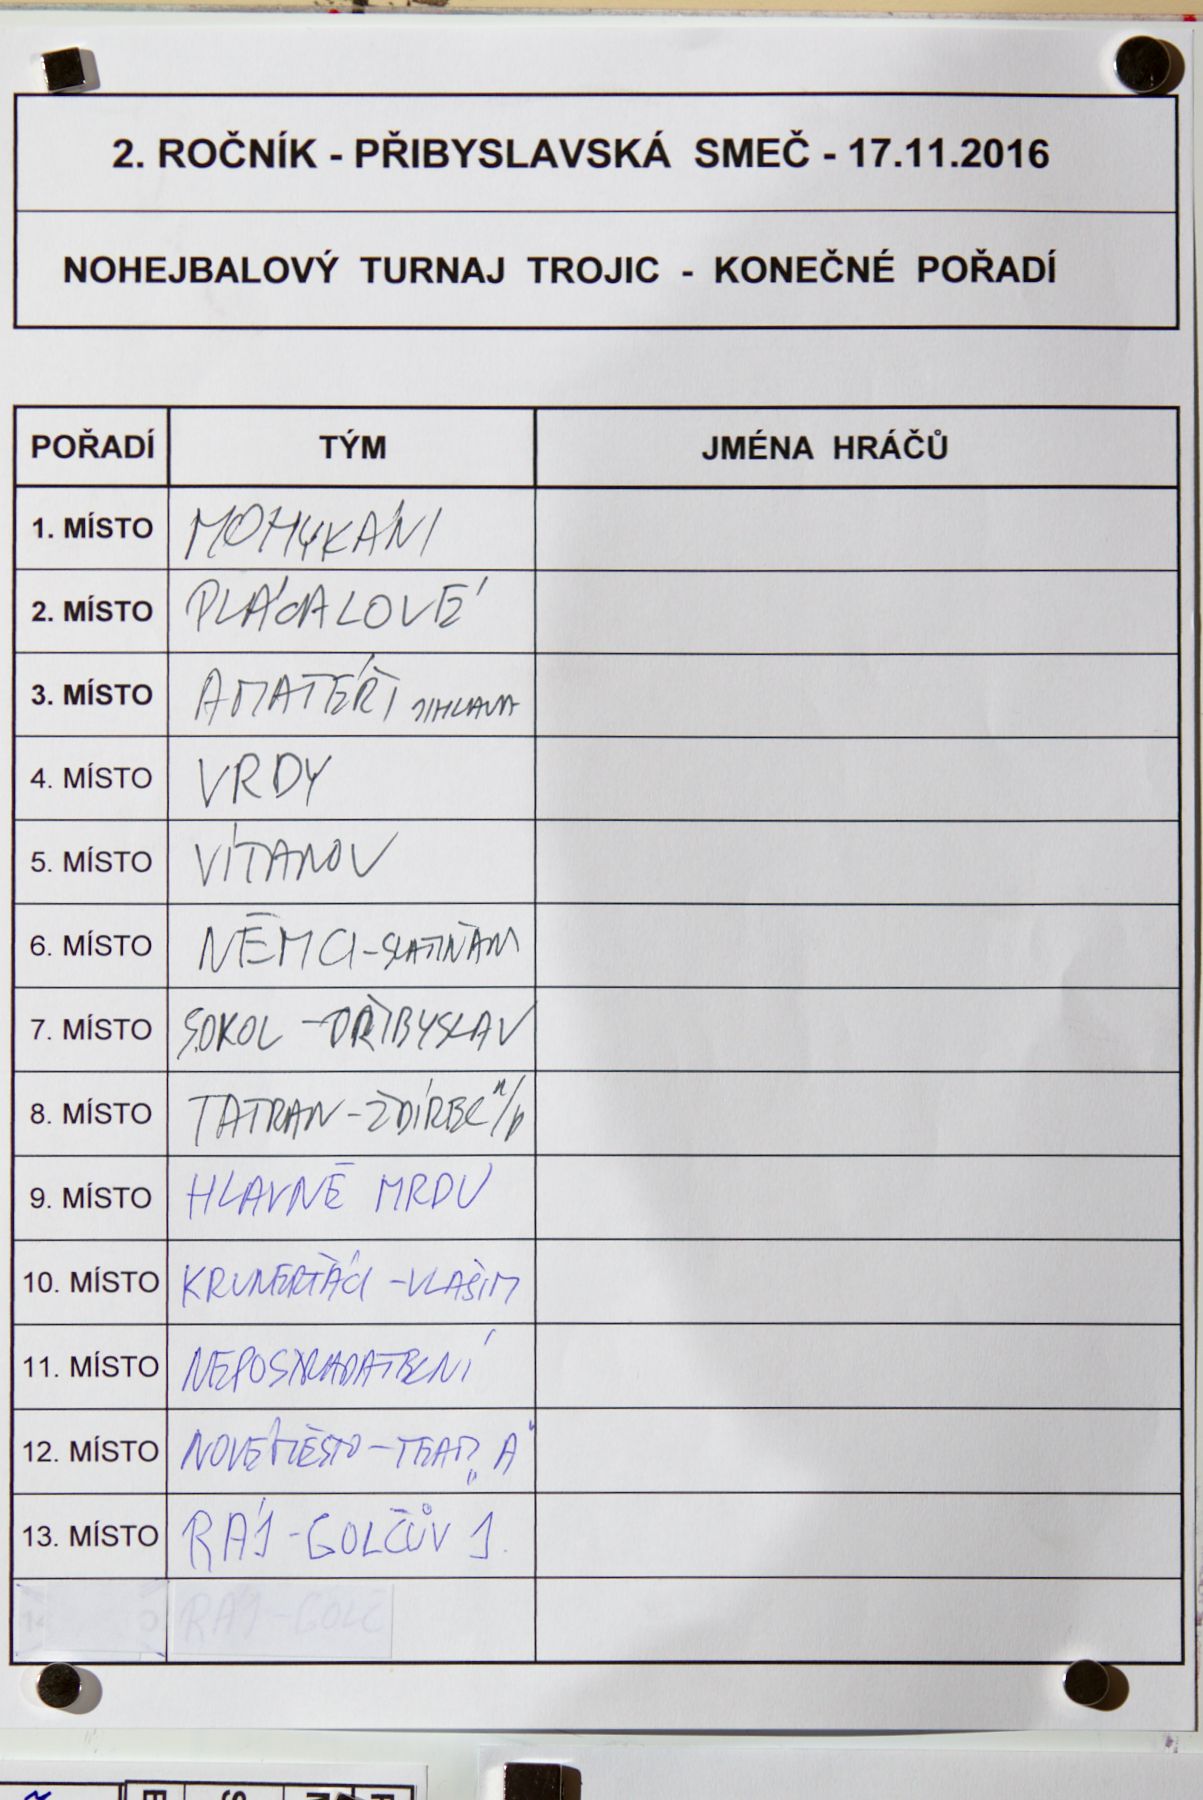 2. ROČNÍK - PŘIBYSLAVSKÁ SMEČ - 17.11.2016
NOHEJBALOVÝ TURNAJ TROJIC - KONEČNÉ POŘADÍ
POŘADÍ TÝM JMÉNA HRÁČŮ
1. MÍSTO MOMYKÁNI
2. MÍSTO PLÁCALOVÉ
3. MÍSTO AMATÉŘI JIHLAVA
4. MÍSTO VRDY
5. MÍSTO VÍTANOV
6. MÍSTO NĚMCI - SLATIŇANY
7. MÍSTO SOKOL - PŘIBYSLAV
8. MÍSTO TATRAN - ŽDÍREC n/D
9. MÍSTO HLAVNĚ MRDU
10. MÍSTO - VLAŠIM
11. MÍSTO NEPOSTRADATELNÍ
12. MÍSTO NOVÉ MĚSTO - TEAM „A"
13. MÍSTO RÁJ - GOLČŮV J.
RÁJ - GOLČ